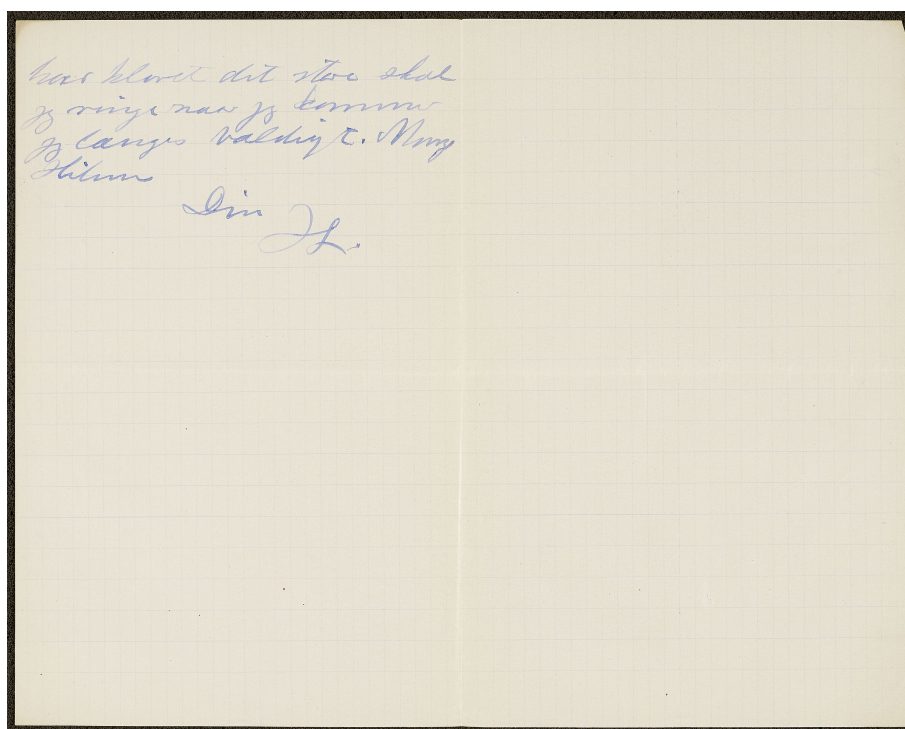 har klaret dit store skal
jeg ringe naar jeg kommer
jeg længes vældigt. Mange
Hilsner
Din
JL.